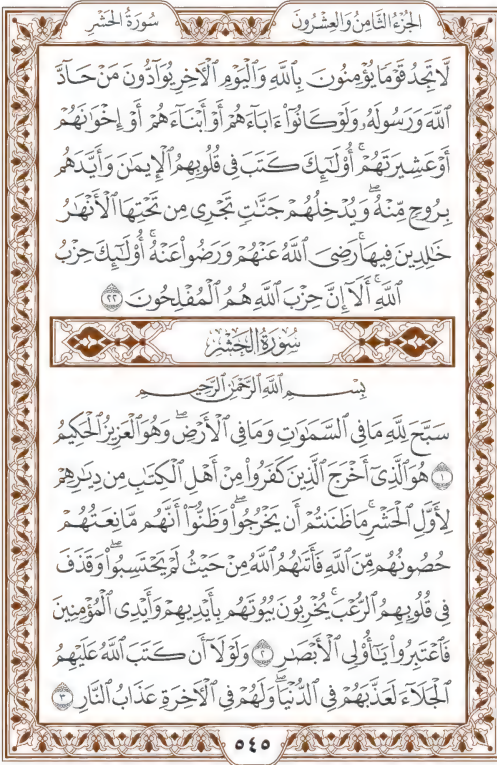 الجُزْءُ الثَّامِنُ وَالعِشْرُونَ
سُورَةُ الحَشْرِ
لَّا تَجِدُ قَوْمًا يُؤْمِنُونَ بِٱللَّهِ وَٱلْيَوْمِ ٱلْأٓخِرِ يُوَآدُّونَ مَنْ حَآدَّ
ٱللَّهَ وَرَسُولَهُۥ وَلَوْ كَانُوٓا۟ ءَابَآءَهُمْ أَوْ أَبْنَآءَهُمْ أَوْ إِخْوَٰنَهُمْ
أَوْ عَشِيرَتَهُمْ ۚ أُو۟لَـٰٓئِكَ كَتَبَ فِى قُلُوبِهِمُ ٱلْإِيمَـٰنَ وَأَيَّدَهُم
بِرُوحٍ مِّنْهُ ۖ وَيُدْخِلُهُمْ جَنَّـٰتٍ تَجْرِى مِن تَحْتِهَا ٱلْأَنْهَـٰرُ
خَـٰلِدِينَ فِيهَا ۚ رَضِىَ ٱللَّهُ عَنْهُمْ وَرَضُوا۟ عَنْهُ ۚ أُو۟لَـٰٓئِكَ حِزْبُ
ٱللَّهِ ۚ أَلَآ إِنَّ حِزْبَ ٱللَّهِ هُمُ ٱلْمُفْلِحُونَ ٢٢
سُورَةُ الحَشْرِ
بِسْمِ ٱللَّهِ ٱلرَّحْمَـٰنِ ٱلرَّحِيمِ
سَبَّحَ لِلَّهِ مَا فِى ٱلسَّمَـٰوَٰتِ وَمَا فِى ٱلْأَرْضِ ۖ وَهُوَ ٱلْعَزِيزُ ٱلْحَكِيمُ
١ هُوَ ٱلَّذِىٓ أَخْرَجَ ٱلَّذِينَ كَفَرُوا۟ مِنْ أَهْلِ ٱلْكِتَـٰبِ مِن دِيَـٰرِهِمْ
لِأَوَّلِ ٱلْحَشْرِ ۚ مَا ظَنَنتُمْ أَن يَخْرُجُوا۟ ۖ وَظَنُّوٓا۟ أَنَّهُم مَّانِعَتُهُمْ
حُصُونُهُم مِّنَ ٱللَّهِ فَأَتَىٰهُمُ ٱللَّهُ مِنْ حَيْثُ لَمْ يَحْتَسِبُوا۟ ۖ وَقَذَفَ
فِى قُلُوبِهِمُ ٱلرُّعْبَ ۚ يُخْرِبُونَ بُيُوتَهُم بِأَيْدِيهِمْ وَأَيْدِى ٱلْمُؤْمِنِينَ
فَٱعْتَبِرُوا۟ يَـٰٓأُو۟لِى ٱلْأَبْصَـٰرِ ٢ وَلَوْلَآ أَن كَتَبَ ٱللَّهُ عَلَيْهِمُ
ٱلْجَلَآءَ لَعَذَّبَهُمْ فِى ٱلدُّنْيَا ۖ وَلَهُمْ فِى ٱلْأٓخِرَةِ عَذَابُ ٱلنَّارِ ٣
٥٤٥